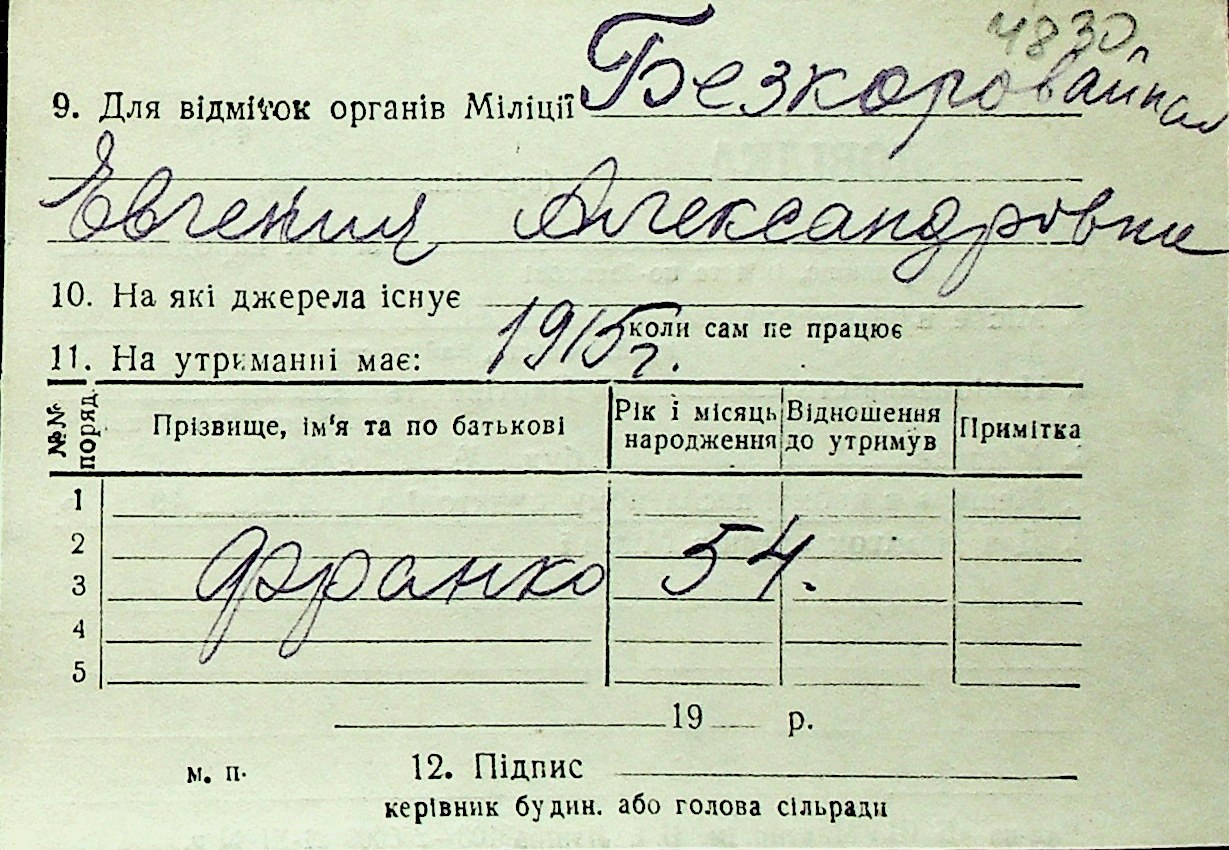 4830
9. Для відміток органів Міліції Безкоровайная
Евгения Александровна
10. На які джерела існує
1915 г. коли сам не працює
11. На утриманні має:
№№ поряд. Прізвище, ім'я та по батькові Рік і місяць народження Відношення до утримув Примітка
1
2
Франко 54.
3
4
5
19 р.
м. п. 12. Підпис
керівник будин. або голова сільради